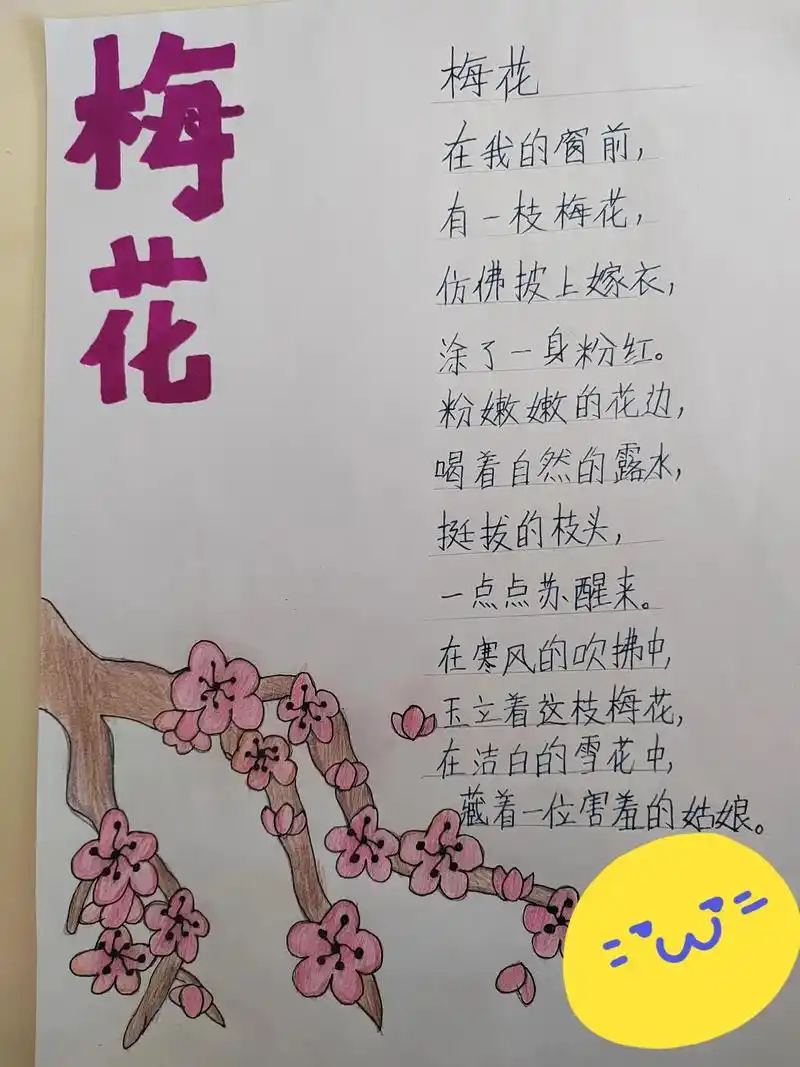 梅花
梅花
在我的窗前，
有一枝梅花，
仿佛披上嫁衣，
涂了一身粉红。
粉嫩嫩的花边，
喝着自然的露水，
挺拔的枝头，
一点点苏醒来。
在寒风的吹拂中，
玉立着这枝梅花，
在洁白的雪花中，
藏着一位害羞的姑娘。